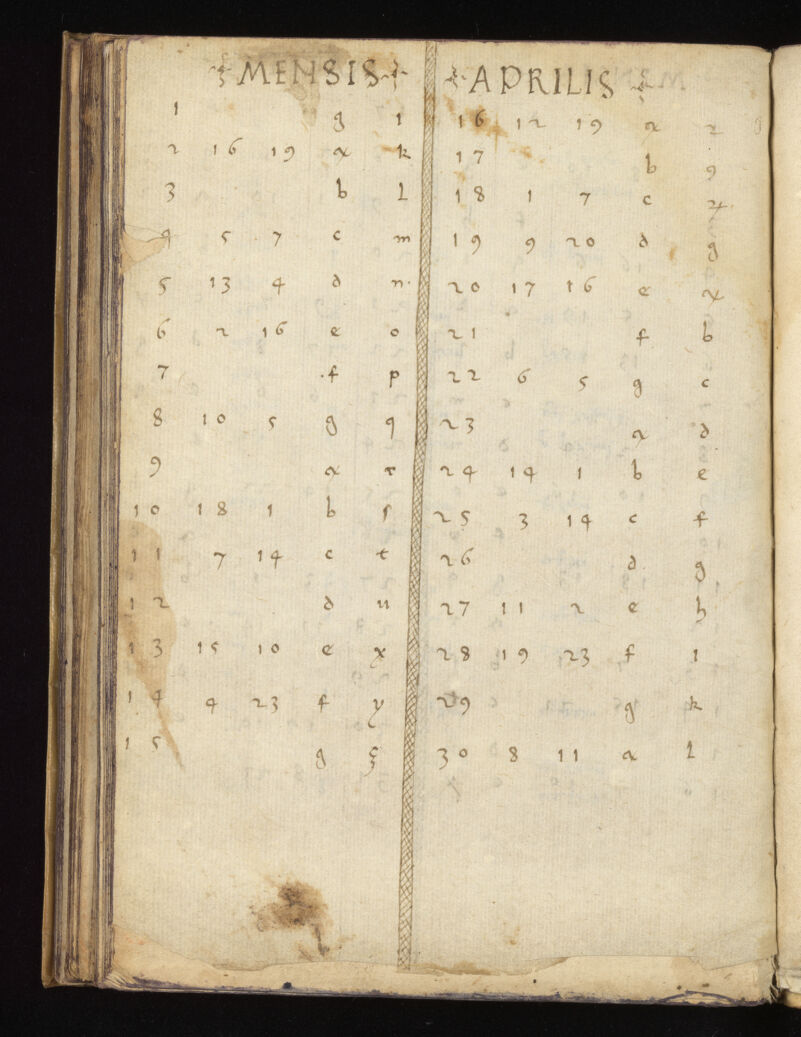 MENSIS APRILIS
1 g i
2 16 19 a k
3 b l
4 5 7 c m
5 13 4 d n.
6 2 16 e o
7 .f p
8 10 5 g q
9 a r
10 18 1 b ſ
11 7 14 c t
12 d u
13 15 10 e x
14 4 23 f y
15 g z
16 12 19 a
17 b 9
18 1 7 c
19 9 20 d g
20 17 16 e a
21 f b
22 6 5 g c
23 a d
24 14 1 b e
25 3 14 c f
26 d g
27 11 2 e h
28 19 23 f i
29 g k
30 8 11 a l